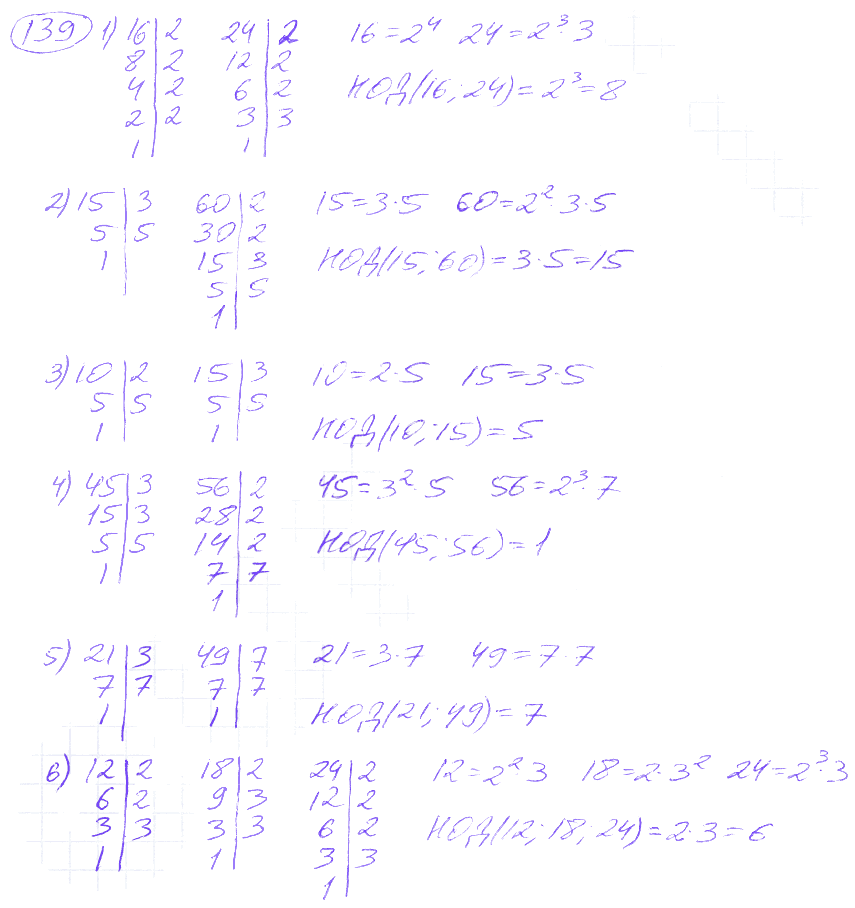 139 1) 16 | 2 24 | 2 16 = 2⁴ 24 = 2³·3
8 | 2 12 | 2
4 | 2 6 | 2 НОД(16; 24) = 2³ = 8
2 | 2 3 | 3
1 | 1 |
2) 15 | 3 60 | 2 15 = 3·5 60 = 2²·3·5
5 | 5 30 | 2
1 | 15 | 3 НОД(15; 60) = 3·5 = 15
5 | 5
1 |
3) 10 | 2 15 | 3 10 = 2·5 15 = 3·5
5 | 5 5 | 5
1 | 1 | НОД(10; 15) = 5
4) 45 | 3 56 | 2 45 = 3²·5 56 = 2³·7
15 | 3 28 | 2
5 | 5 14 | 2 НОД(45; 56) = 1
1 | 7 | 7
1 |
5) 21 | 3 49 | 7 21 = 3·7 49 = 7·7
7 | 7 7 | 7
1 | 1 | НОД(21; 49) = 7
6) 12 | 2 18 | 2 24 | 2 12 = 2²·3 18 = 2·3² 24 = 2³·3
6 | 2 9 | 3 12 | 2
3 | 3 3 | 3 6 | 2 НОД(12; 18; 24) = 2·3 = 6
1 | 1 | 3 | 3
1 |